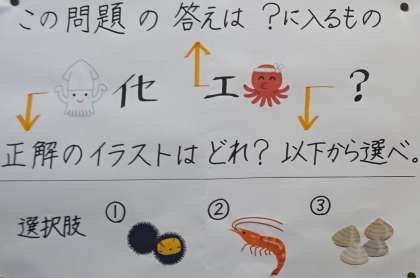 この問題の答えは ?に入るもの
化 エ ?
正解のイラストはどれ? 以下から選べ。
選択肢 ① ② ③